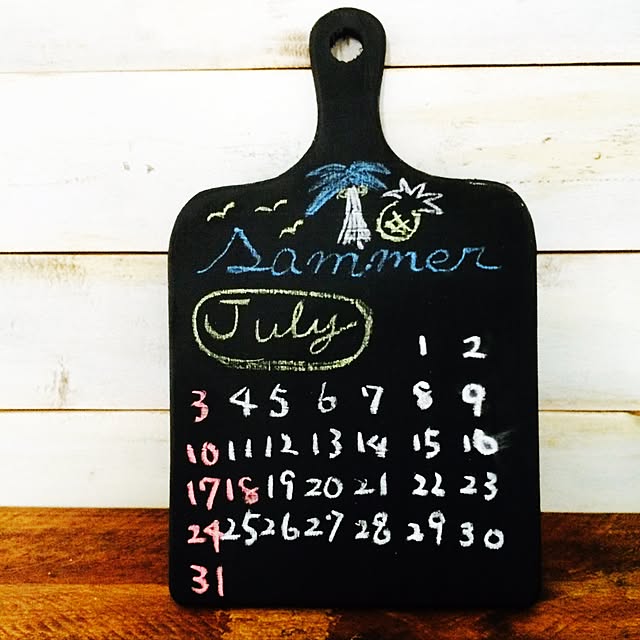 Sammer
July
1 2
3 4 5 6 7 8 9
10 11 12 13 14 15 16
17 18 19 20 21 22 23
24 25 26 27 28 29 30
31